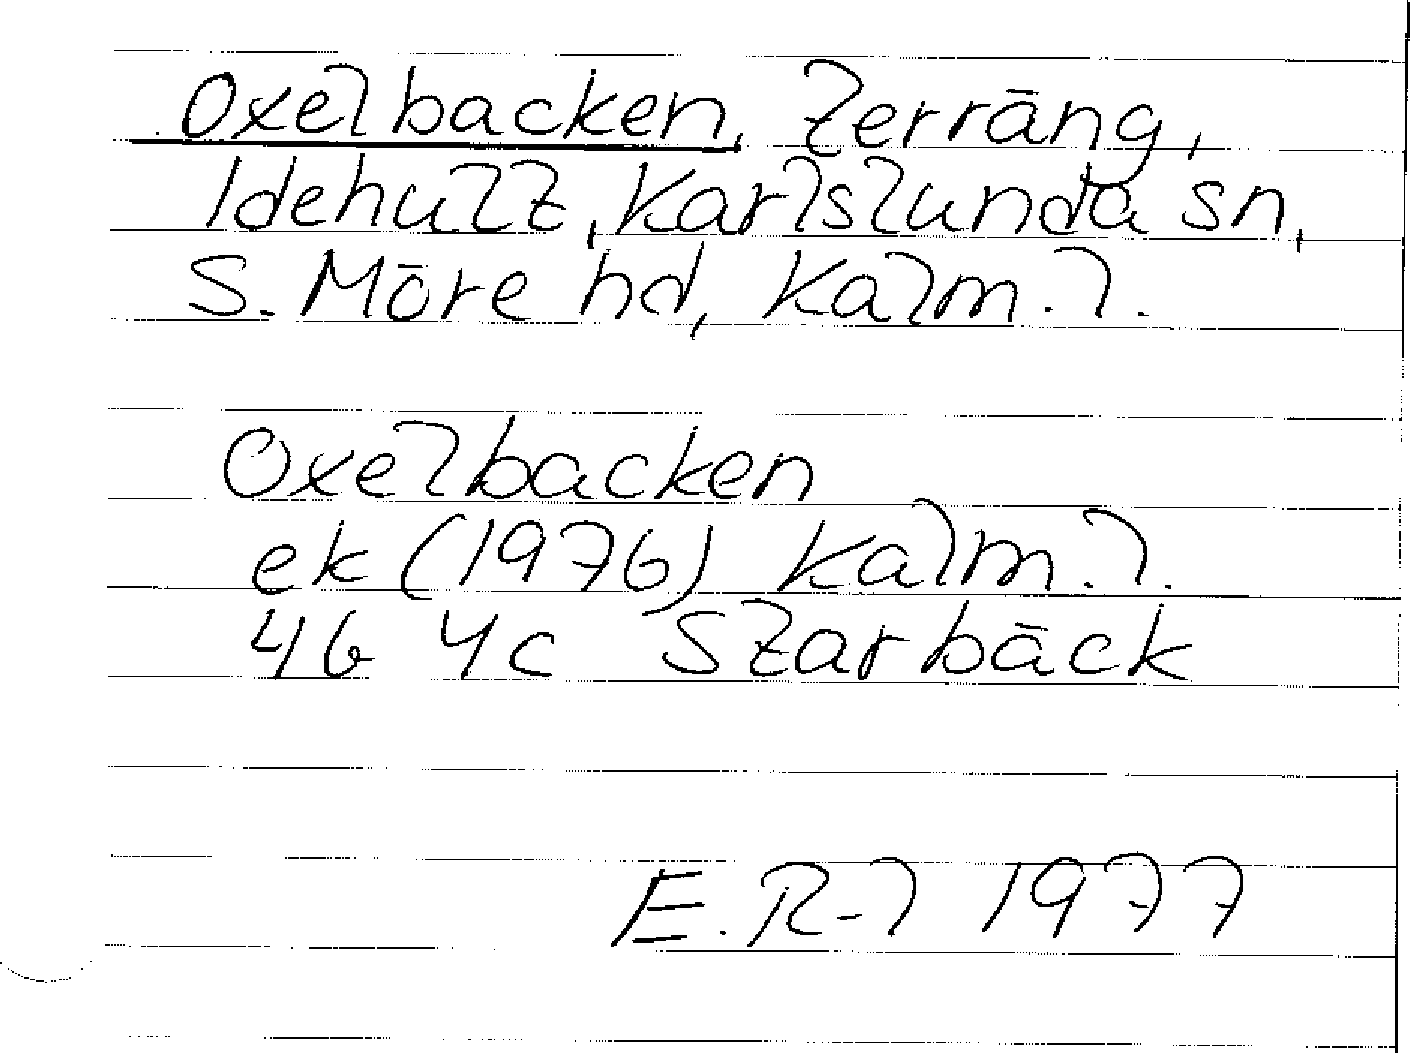 Oxelbacken, Terräng,
Idehult, Karlslunda sn,
S. Möre hd, Kalm. l.
Oxelbacken
ek (1976) Kalm. l.
4G 4c Starbäck
E. R-l 1977